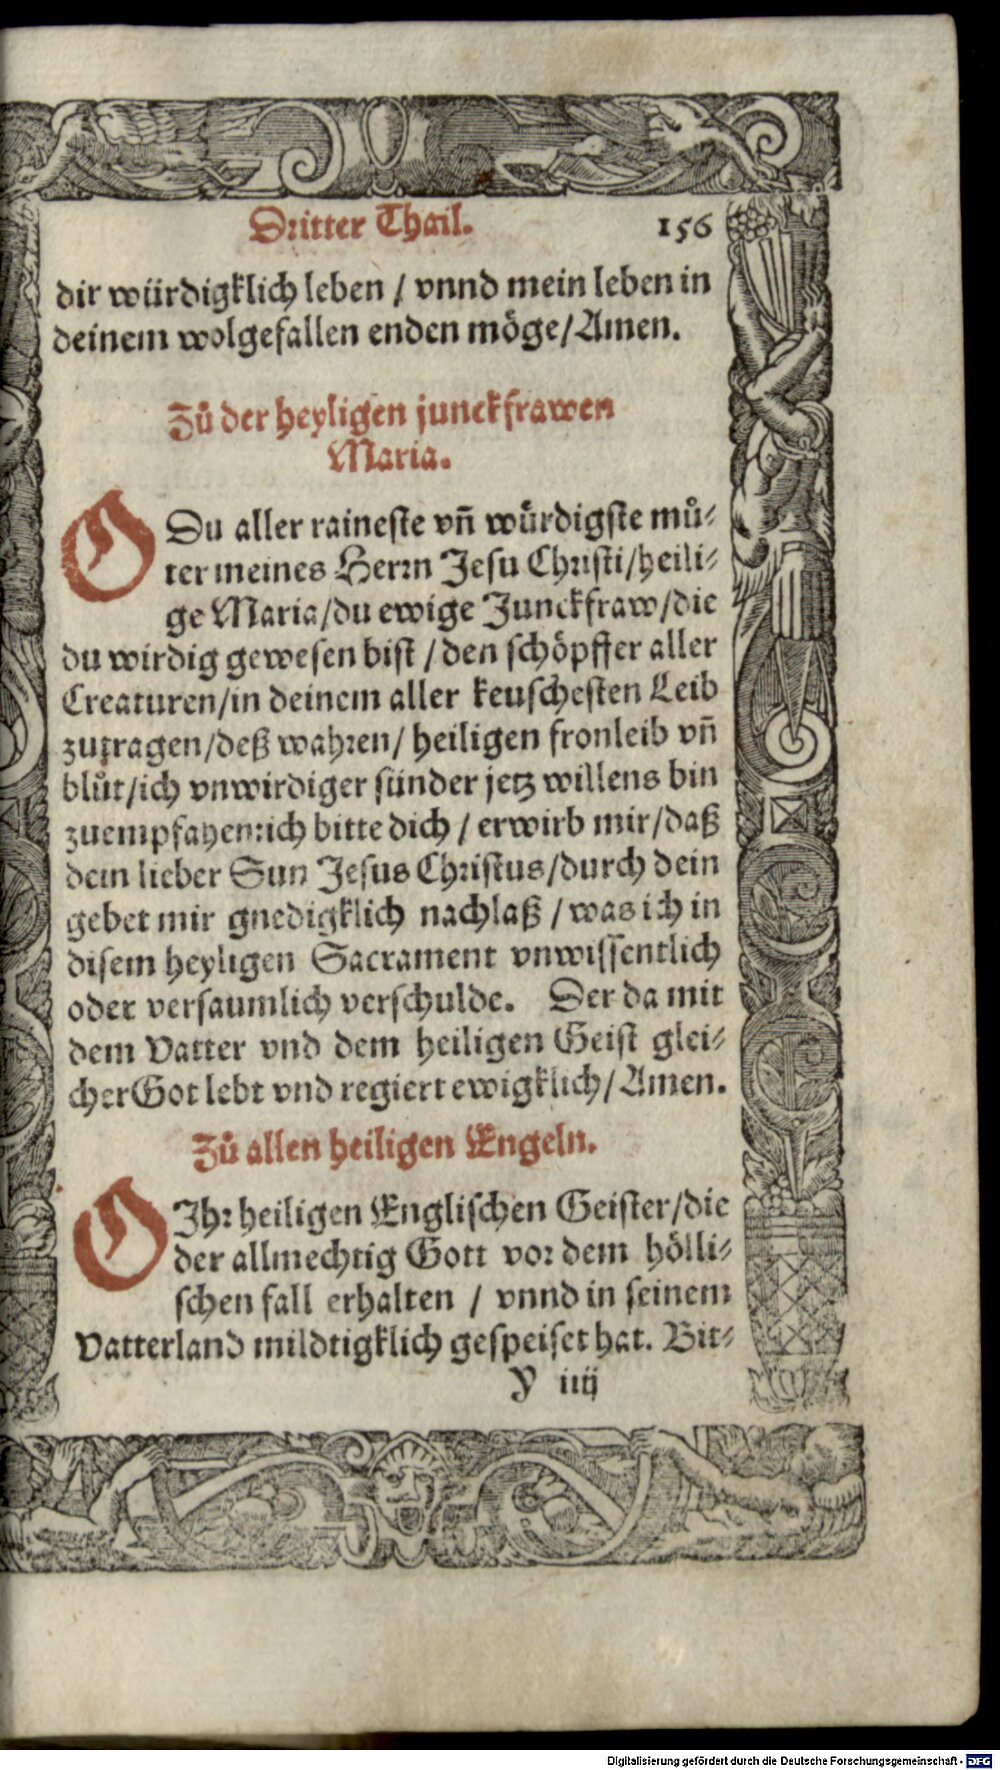 Dritter Thail. 156
dir würdigklich leben / vnnd mein leben in
deinem wolgefallen enden möge/Amen.
Zů der heyligen junckfrawen
Maria.
O Du aller raineste vñ würdigste mů⸗
ter meines Herrn Jesu Christi/heili⸗
ge Maria/du ewige Junckfraw/die
du wirdig gewesen bist / den schöpffer aller
Creaturen/in deinem aller keuschesten Leib
zutragen/deß wahren/ heiligen fronleib vñ
blůt/ich vnwirdiger sünder jetz willens bin
zuempfahen: ich bitte dich / erwirb mir/daß
dein lieber Sun Jesus Christus/durch dein
gebet mir gnedigklich nachlaß / was ich in
disem heyligen Sacrament vnwissentlich
oder versaumlich verschulde. Der da mit
dem Vatter vnd dem heiligen Geist glei⸗
cher Got lebt vnd regiert ewigklich/Amen.
Zů allen heiligen Engeln.
O Ihr heiligen Englischen Geister/die
der allmechtig Gott vor dem hölli⸗
schen fall erhalten / vnnd in seinem
Vatterland mildtigklich gespeiset hat. Bit⸗
Y iiij
Digitalisierung gefördert durch die Deutsche Forschungsgemeinschaft - DFG